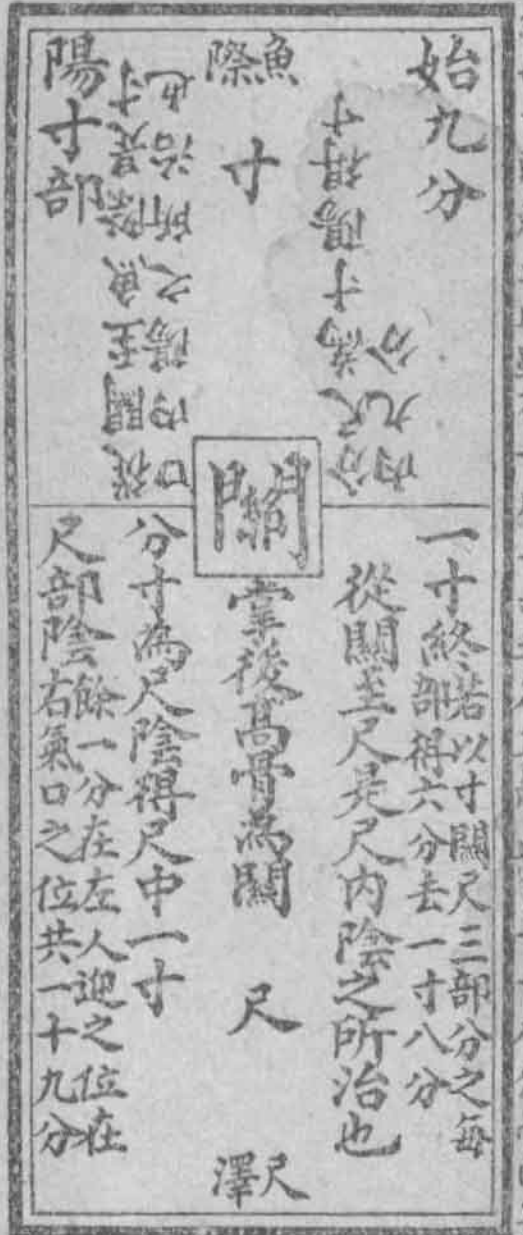 始九分
魚際
寸
陽寸部
從關至魚際是寸
口內陽之所治也
分尺為寸陽得寸
內九分
關
一寸終
若以寸關尺三部分之每
部得六分去一寸八分
從關至尺是尺內陰之所治也
掌後高骨為關
尺
尺澤
分寸為尺陰得尺中一寸
尺部陰
餘一分在左人迎之位在
右氣口之位共一十九分